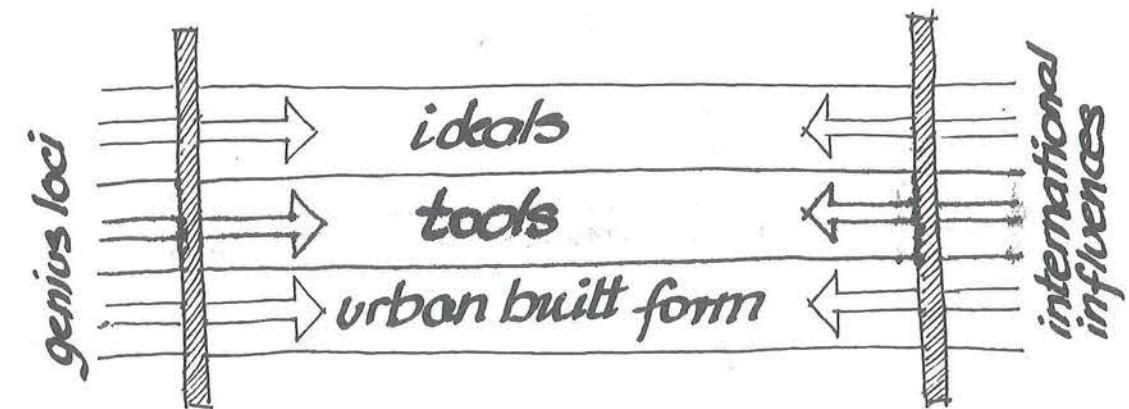 genius loci
ideals
tools
urban built form
international
influences